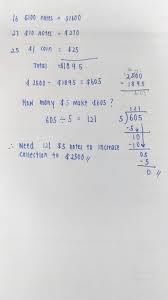 16 $100 notes = $1600
27 $10 notes = $270
25 $1 coin = $25
Total = $1895
$2500 - $1895 = $605
2500
- 1895
605
How many $5 make $605?
605 ÷ 5 = 121
121
5√605
-5↓
10
-10↓
05
-5
0
∴ Need 121 $5 notes to increase
collection to $2500 //